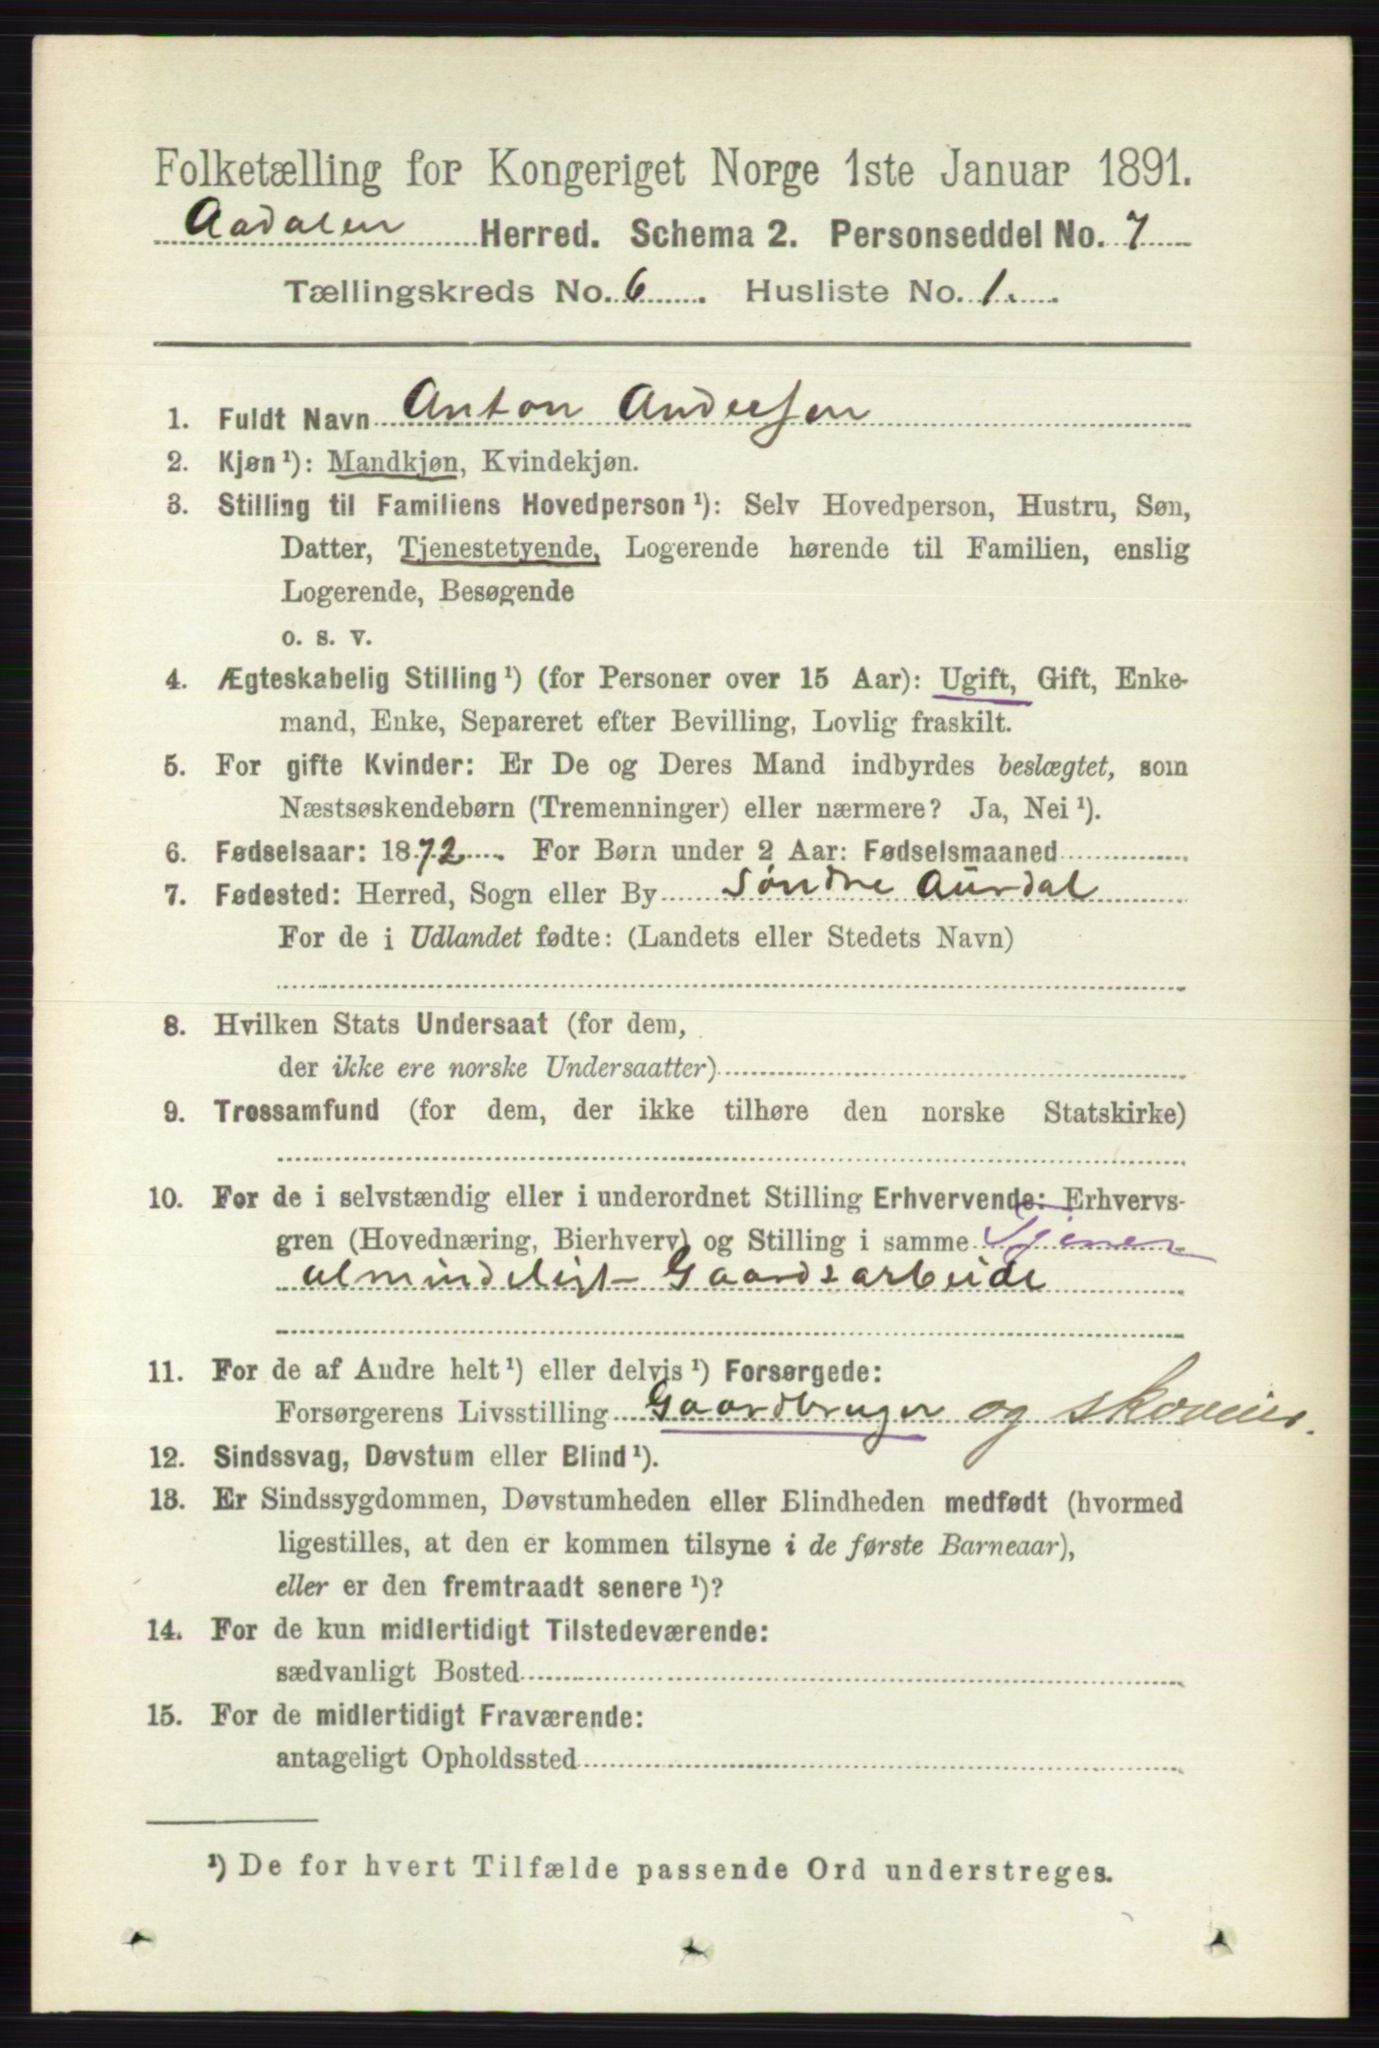 Folketælling for Kongeriget Norge 1ste Januar 1891.
Aadalen Herred. Schema 2. Personseddel No. 7
Tællingskreds No. 6 . Husliste No. 1.
1. Fuldt Navn Anton Andersen
2. Kjøn ¹): Mandkjøn, Kvindekjøn.
3. Stilling til Familiens Hovedperson ¹): Selv Hovedperson, Hustru, Søn,
Datter, Tjenestetyende, Logerende hørende til Familien, enslig
Logerende, Besøgende
o. s. v.
4. Ægteskabelig Stilling ¹) (for Personer over 15 Aar): Ugift, Gift, Enke-
mand, Enke, Separeret efter Bevilling, Lovlig fraskilt.
5. For gifte Kvinder: Er De og Deres Mand indbyrdes beslægtet, som
Næstsøskendebørn (Tremenninger) eller nærmere? Ja, Nei ¹).
6. Fødselsaar: 1872 . For Børn under 2 Aar: Fødselsmaaned
7. Fødested: Herred, Sogn eller By Søndre Aurdal
For de i Udlandet fødte: (Landets eller Stedets Navn)
8. Hvilken Stats Undersaat (for dem,
der ikke ere norske Undersaatter)
9. Trossamfund (for dem, der ikke tilhøre den norske Statskirke)
10. For de i selvstændig eller i underordnet Stilling Erhvervende: Erhvervs-
gren (Hovednæring, Bierhverv) og Stilling i samme Tjener
almindeligt Gaardsarbeide
11. For de af Andre helt ¹) eller delvis ¹) Forsørgede:
Forsørgerens Livsstilling Gaardbruger og skoveier.
12. Sindssvag, Døvstum eller Blind ¹).
13. Er Sindssygdommen, Døvstumheden eller Blindheden medfødt (hvormed
ligestilles, at den er kommen tilsyne i de første Barneaar),
eller er den fremtraadt senere ¹)?
14. For de kun midlertidigt Tilstedeværende:
sædvanligt Bosted
15. For de midlertidigt Fraværende:
antageligt Opholdssted
¹) De for hvert Tilfælde passende Ord understreges.